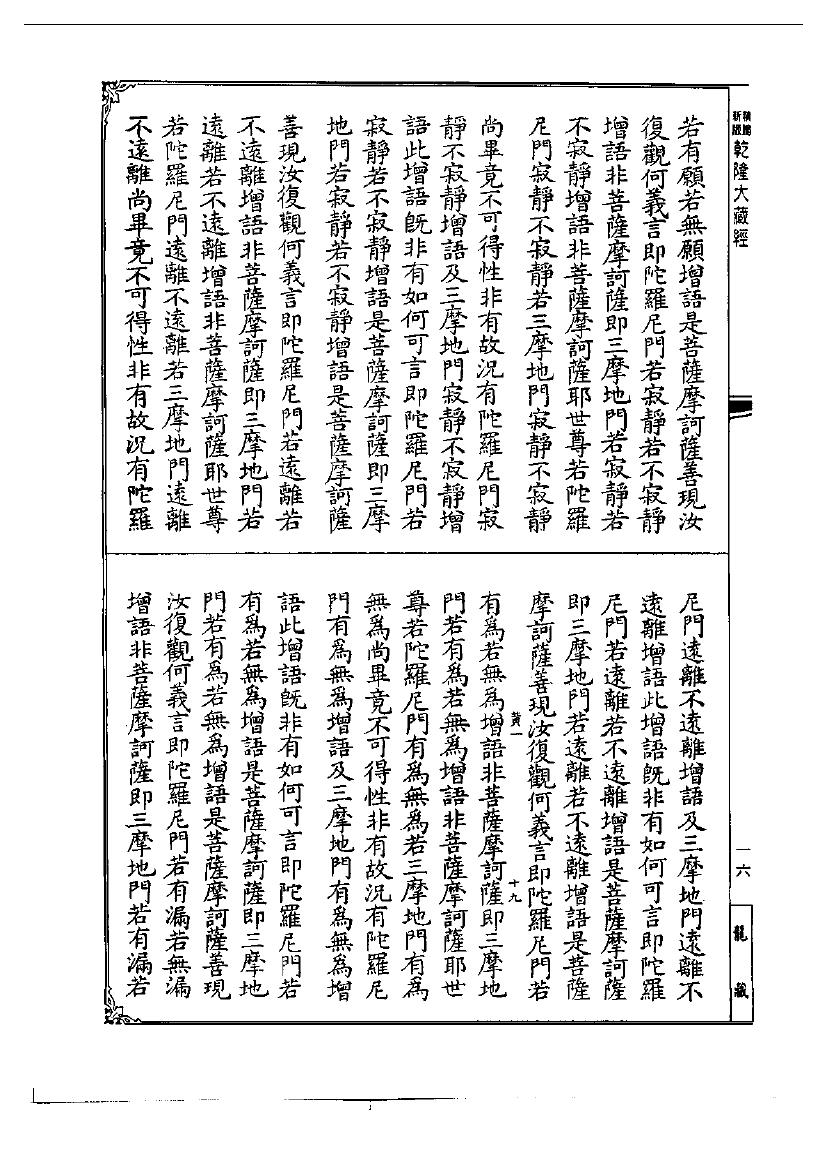 新編縮版 乾隆大藏經
若有願若無願增語是菩薩摩訶薩善現汝
復觀何義言即陀羅尼門若寂靜若不寂靜
增語非菩薩摩訶薩即三摩地門若寂靜若
不寂靜增語非菩薩摩訶薩耶世尊若陀羅
尼門寂靜不寂靜若三摩地門寂靜不寂靜
尚畢竟不可得性非有故況有陀羅尼門寂
靜不寂靜增語及三摩地門寂靜不寂靜增
語此增語既非有如何可言即陀羅尼門若
寂靜若不寂靜增語是菩薩摩訶薩即三摩
地門若寂靜若不寂靜增語是菩薩摩訶薩
善現汝復觀何義言即陀羅尼門若遠離若
不遠離增語非菩薩摩訶薩即三摩地門若
遠離若不遠離增語非菩薩摩訶薩耶世尊
若陀羅尼門遠離不遠離若三摩地門遠離
不遠離尚畢竟不可得性非有故況有陀羅
尼門遠離不遠離增語及三摩地門遠離不
遠離增語此增語既非有如何可言即陀羅
尼門若遠離若不遠離增語是菩薩摩訶薩
即三摩地門若遠離若不遠離增語是菩薩
摩訶薩善現汝復觀何義言即陀羅尼門若
黃一 十九
有為若無為增語非菩薩摩訶薩即三摩地
門若有為若無為增語非菩薩摩訶薩耶世
尊若陀羅尼門有為無為若三摩地門有為
無為尚畢竟不可得性非有故況有陀羅尼
門有為無為增語及三摩地門有為無為增
語此增語既非有如何可言即陀羅尼門若
有為若無為增語是菩薩摩訶薩即三摩地
門若有為若無為增語是菩薩摩訶薩善現
汝復觀何義言即陀羅尼門若有漏若無漏
增語非菩薩摩訶薩即三摩地門若有漏若
一六
龍藏